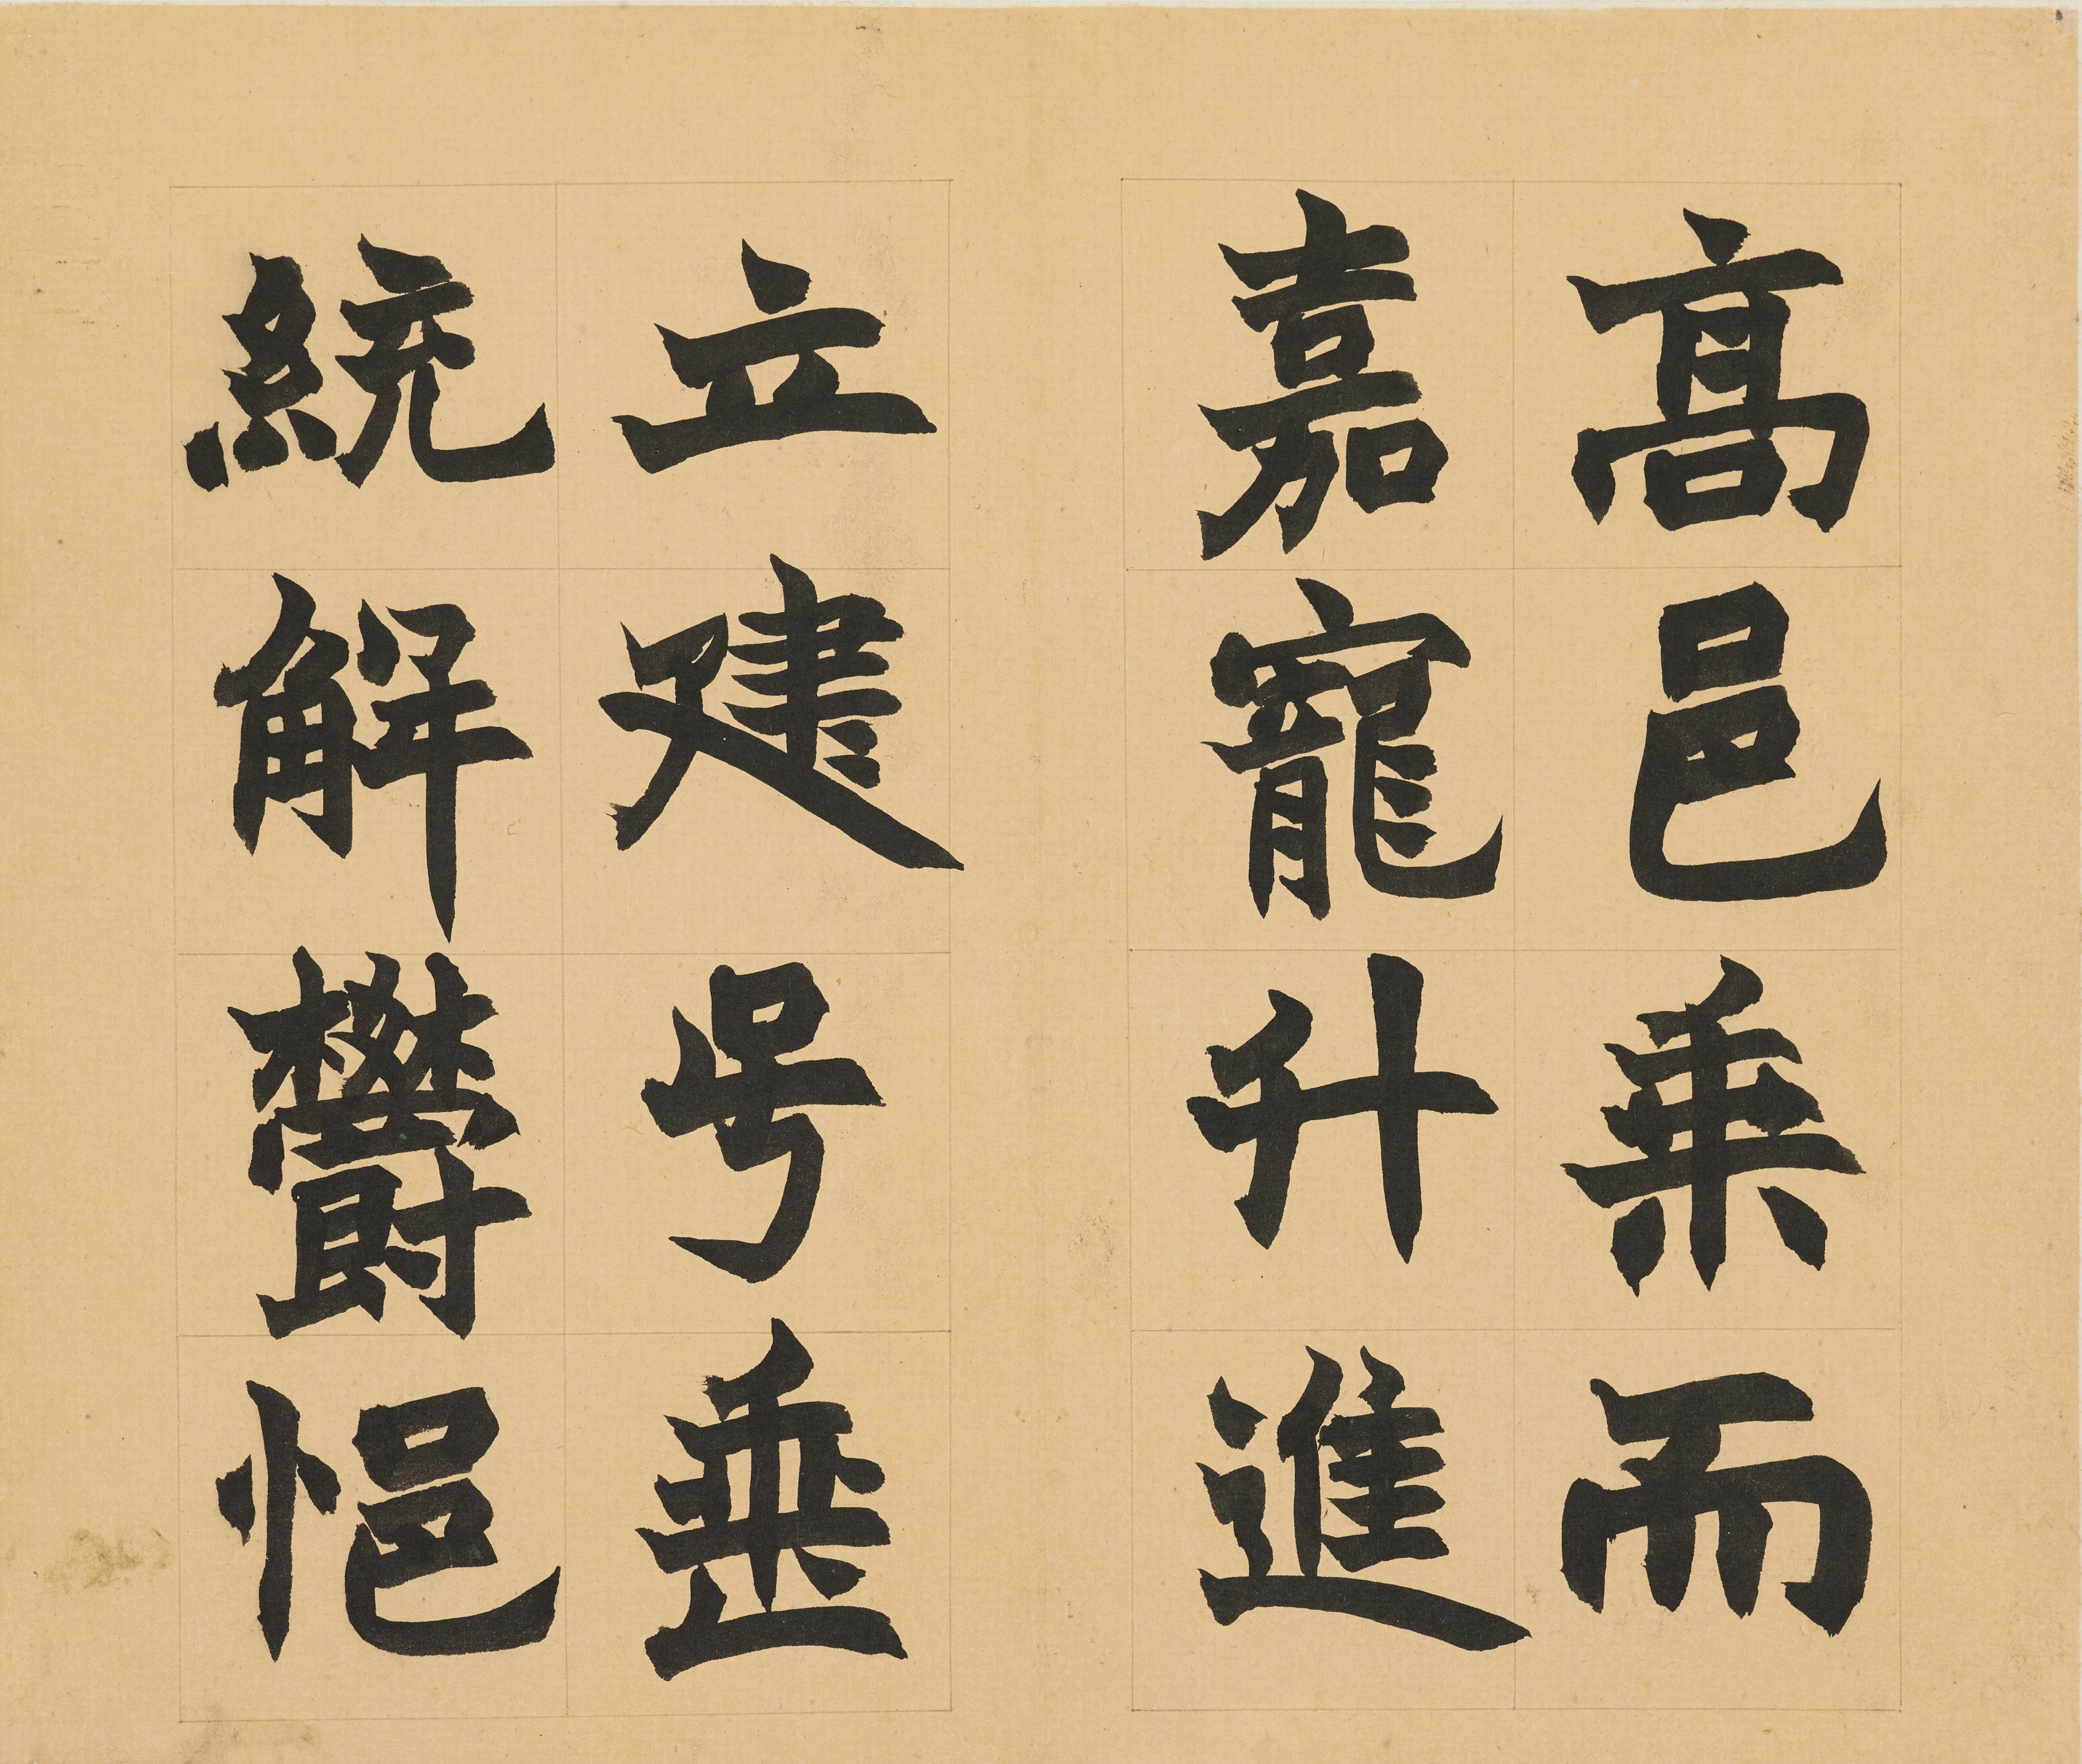 高邑乗而
嘉寵升進
立建号垂
統解鬱悒